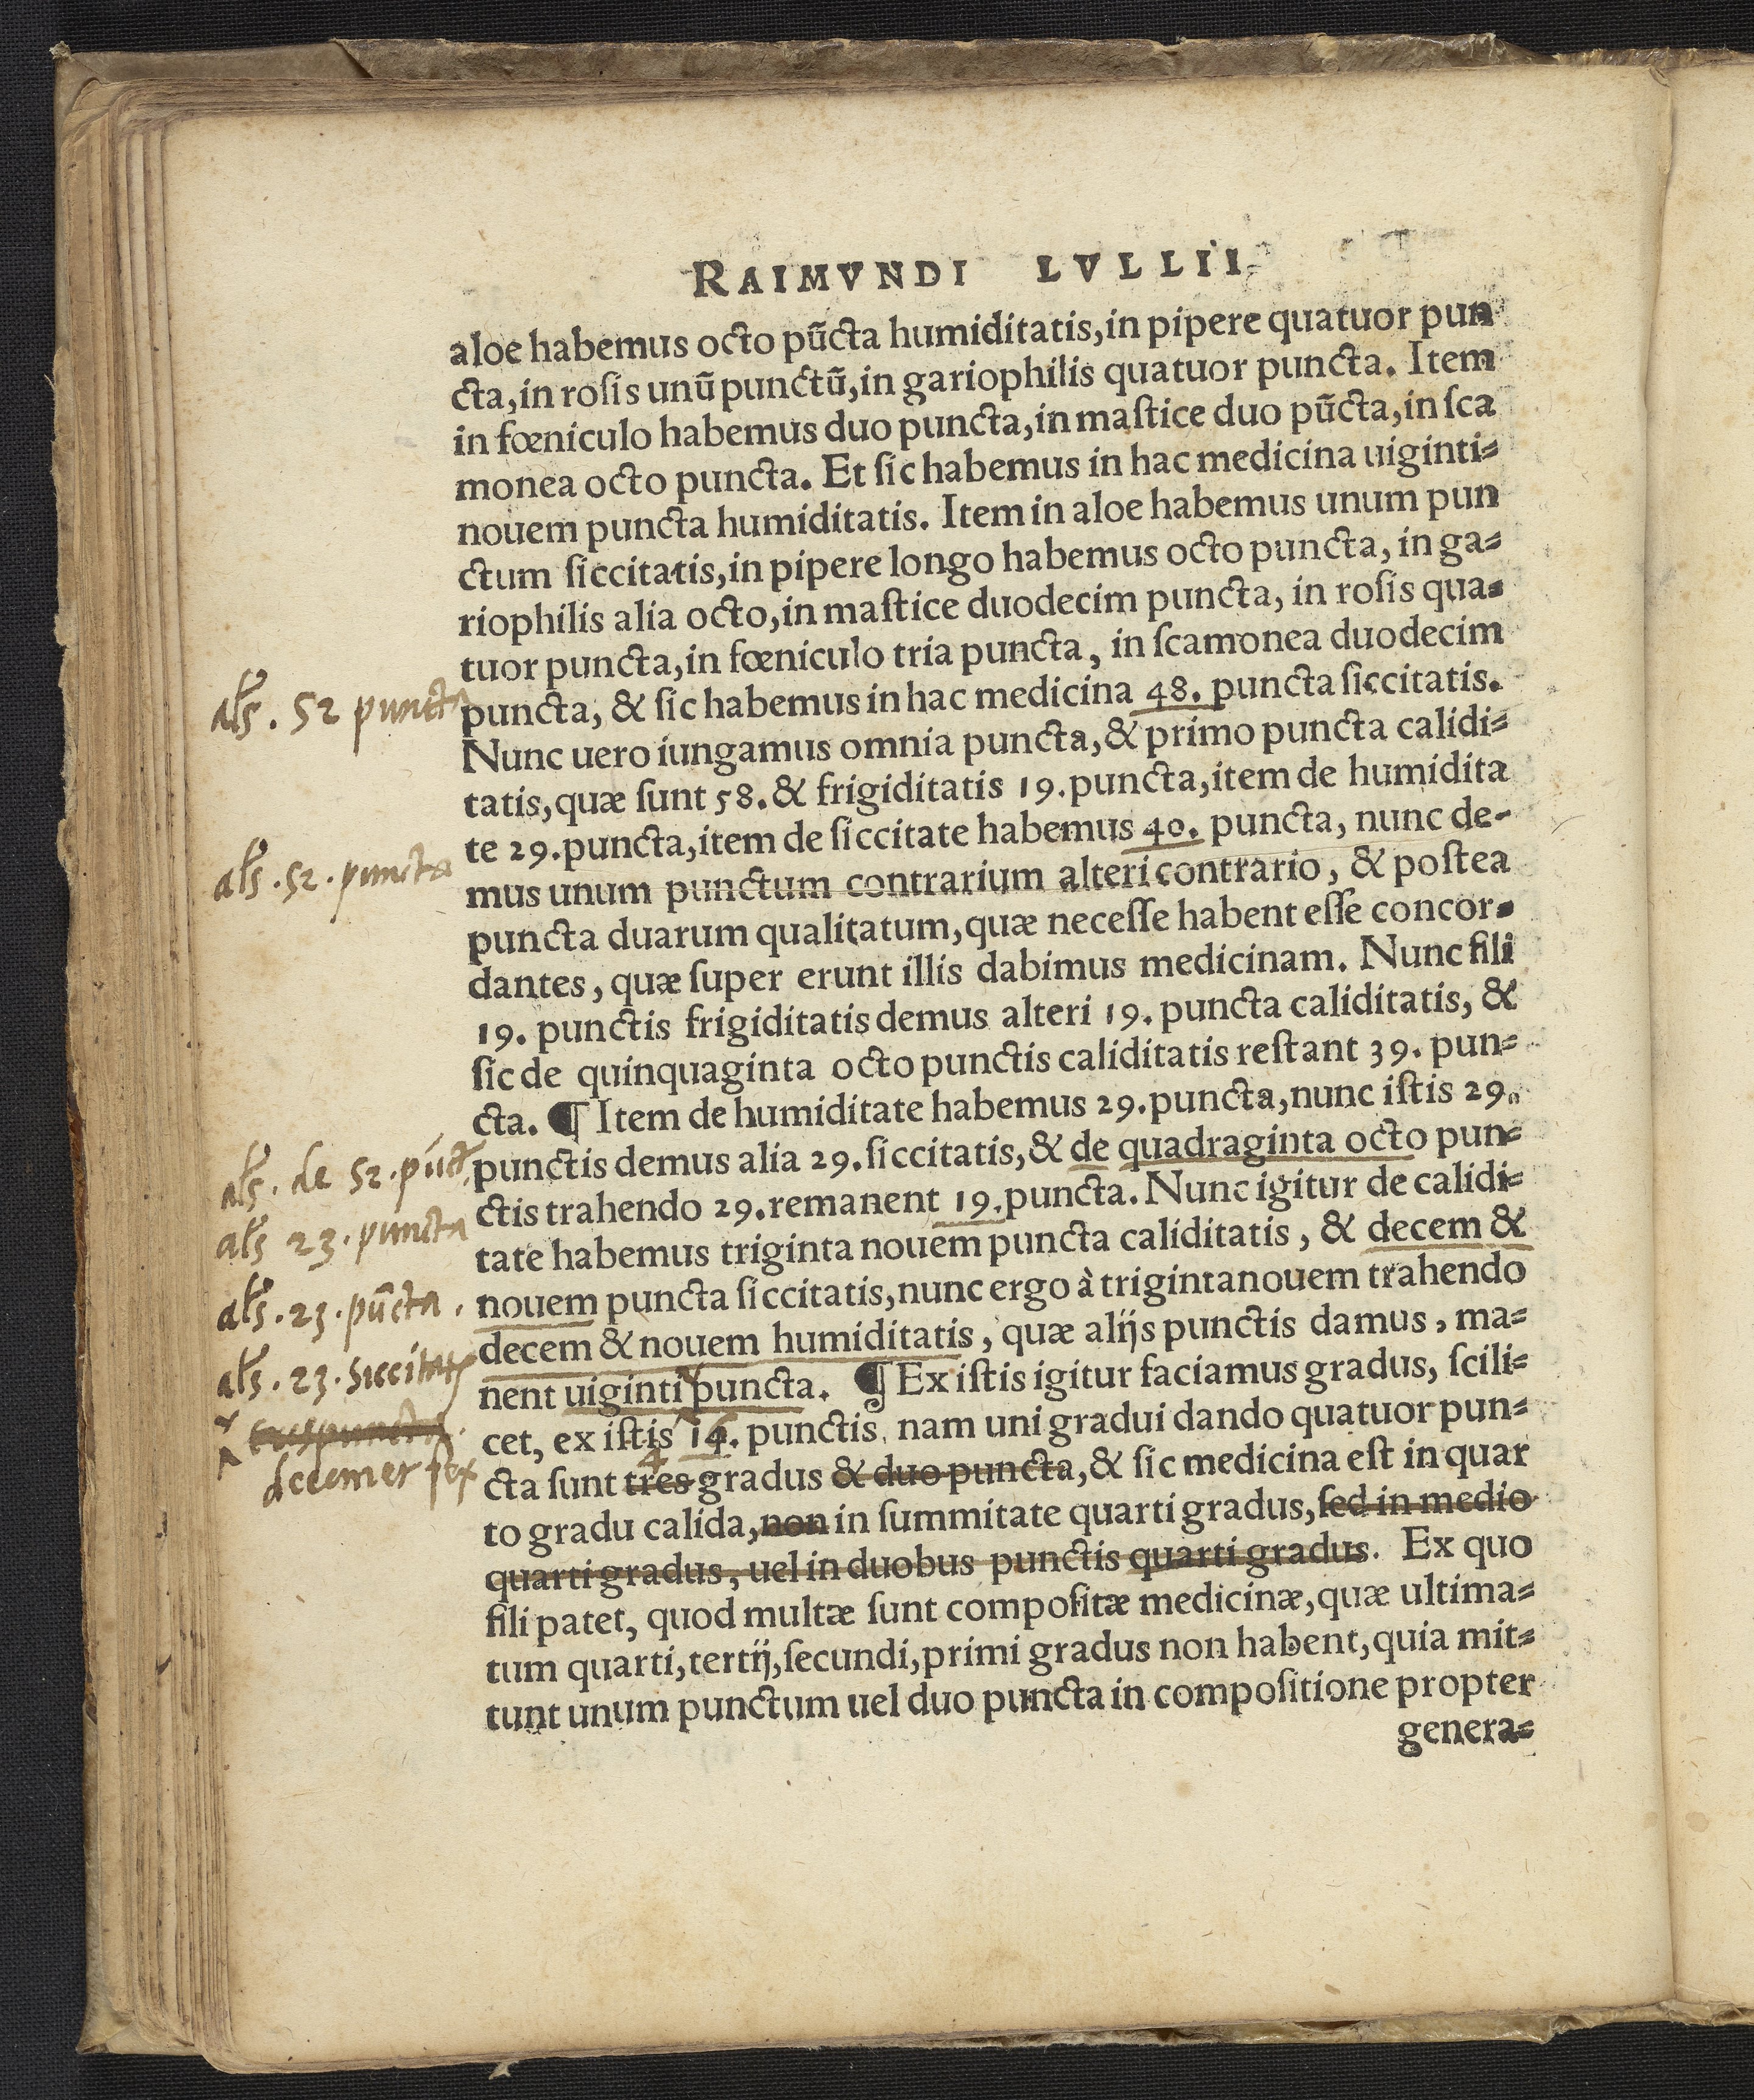 RAIMVNDI LVLLII
aloe habemus octo pũcta humiditatis, in pipere quatuor pun
cta, in roſis unũ punctũ, in gariophilis quatuor puncta. Item
in fœniculo habemus duo puncta, in maſtice duo pũcta, in ſca
monea octo puncta. Et ſic habemus in hac medicina uiginti⸗
nouem puncta humiditatis. Item in aloe habemus unum pun
ctum ſiccitatis, in pipere longo habemus octo puncta, in ga⸗
riophilis alia octo, in maſtice duodecim puncta, in roſis qua⸗
tuor puncta, in fœniculo tria puncta, in ſcamonea duodecim
als. 52 puncta
puncta, & ſic habemus in hac medicina 48. puncta ſiccitatis.
Nunc uero iungamus omnia puncta, & primo puncta calidi⸗
tatis, quæ ſunt 58. & frigiditatis 19. puncta, item de humidita
te 29. puncta, item de ſiccitate habemus 40. puncta, nunc de⸗
als. 52. puncta
mus unum punctum contrarium alteri contrario, & poſtea
puncta duarum qualitatum, quæ neceſſe habent eſſe concor⸗
dantes, quæ ſuper erunt illis dabimus medicinam. Nunc fili
19. punctis frigiditatis demus alteri 19. puncta caliditatis, &
ſic de quinquaginta octo punctis caliditatis reſtant 39. pun⸗
cta. ¶ Item de humiditate habemus 29. puncta, nunc iſtis 29.
als. de 52. púct.
punctis demus alia 29. ſiccitatis, & de quadraginta octo pun⸗
ctis trahendo 29. remanent 19. puncta. Nunc igitur de calidi⸗
als 23. puncta
tate habemus triginta nouem puncta caliditatis, & decem &
als. 23. pũcta.
nouem puncta ſiccitatis, nunc ergo à trigintanouem trahendo
decem & nouem humiditatis, quæ alijs punctis damus, ma⸗
als. 23. siccitatis
nent uiginti puncta. ¶ Ex iſtis igitur faciamus gradus, ſcili⸗
tres puncta.
decem et sex
cet, ex iſtis 14. punctis, nam uni gradui dando quatuor pun⸗
4
cta ſunt tres gradus & duo puncta, & ſic medicina eſt in quar
to gradu calida, non in ſummitate quarti gradus, ſed in medio
quarti gradus, uel in duobus punctis quarti gradus. Ex quo
fili patet, quod multæ ſunt compoſitæ medicinæ, quæ ultima⸗
tum quarti, tertij, ſecundi, primi gradus non habent, quia mit⸗
tunt unum punctum uel duo puncta in compoſitione propter
genera⸗